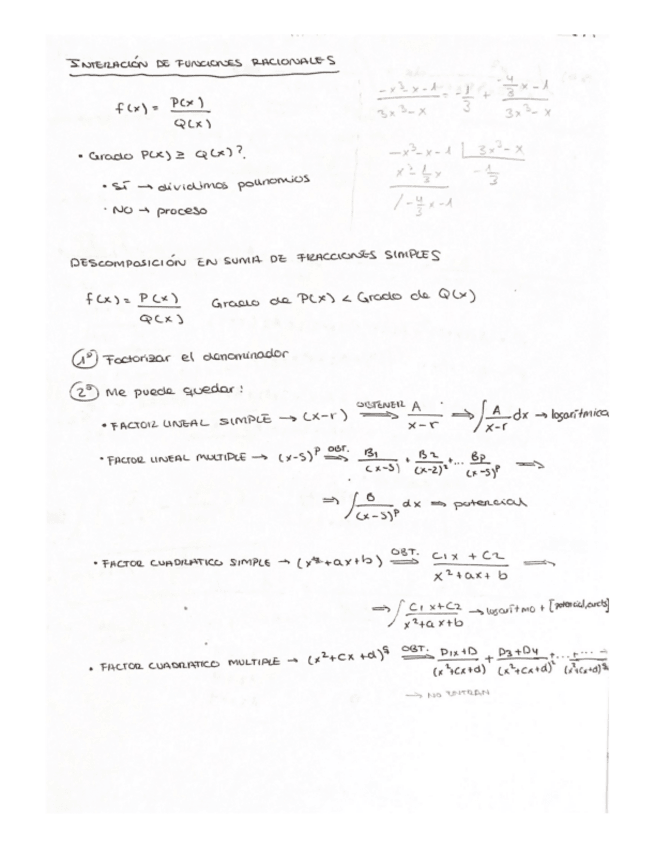 INTEGRACIÓN DE FUNCIONES RACIONALES
f(x) = P(x) / Q(x)
• Grado P(x) ≥ Q(x)?
• SÍ → dividimos polinomios
• NO → proceso
(-x³-x-1)/(3x³-x) = -1/3 + (-4/3 x-1)/(3x³-x)
-x³-x-1 | 3x³-x
x³-1/3 x    -1/3
/ -4/3 x-1
DESCOMPOSICIÓN EN SUMA DE FRACCIONES SIMPLES
f(x) = P(x) / Q(x)    Grado de P(x) < Grado de Q(x)
1º Factorizar el denominador
2º Me puede quedar:
• FACTOR LINEAL SIMPLE → (x-r) OBTENER ⟹ A/(x-r) ⟹ ∫ A/(x-r) dx → logarítmica
• FACTOR LINEAL MULTIPLE → (x-s)ᵖ OBT. ⟹ B1/(x-s) + B2/(x-2)² +... Bp/(x-s)ᵖ ⟹
⟹ ∫ B/(x-s)ᵖ dx ⟹ potencial
• FACTOR CUADRATICO SIMPLE → (x²+ax+b) OBT. ⟹ (C1x + C2)/(x²+ax+b) ⟹
⟹ ∫ (C1x+C2)/(x²+ax+b) → logaritmo +
• FACTOR CUADRATICO MULTIPLE → (x²+cx+d)^q OBT. ⟹ (D1x+D)/(x²+cx+d) + (D3+D4)/(x²+cx+d)² +...+ .../(x²+cx+d)^q
→ NO ENTRAN